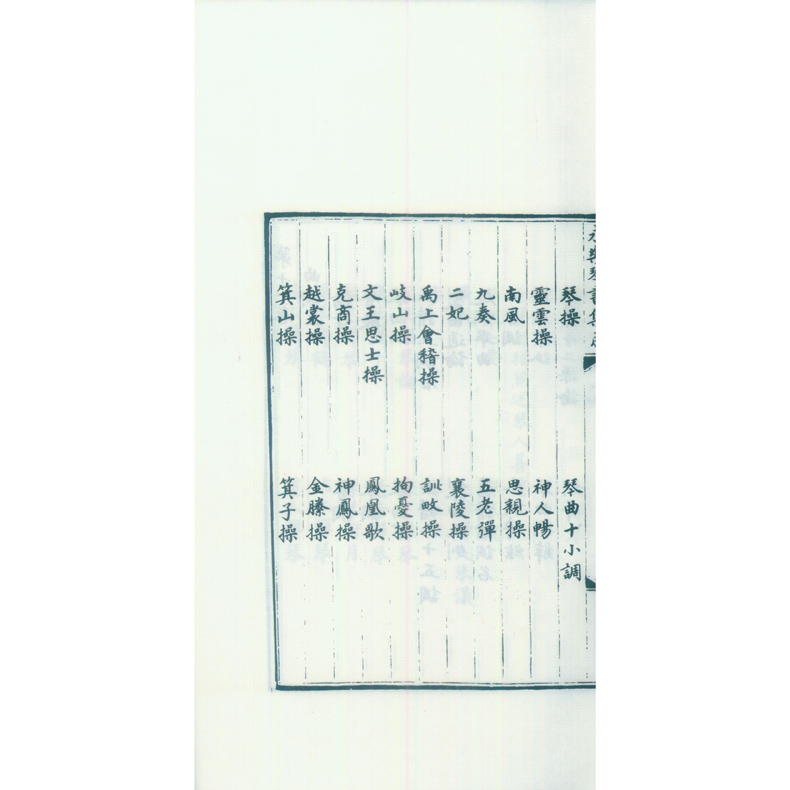 琴操 琴曲十小調
靈雲操 神人暢
南風 思親操
九奏 五老彈
二妃 襄陵操
禹上會稽操 訓畋操
岐山操 拘憂操
文王思士操 鳳凰歌
克商操 神鳳操
越裳操 金縢操
箕山操 箕子操